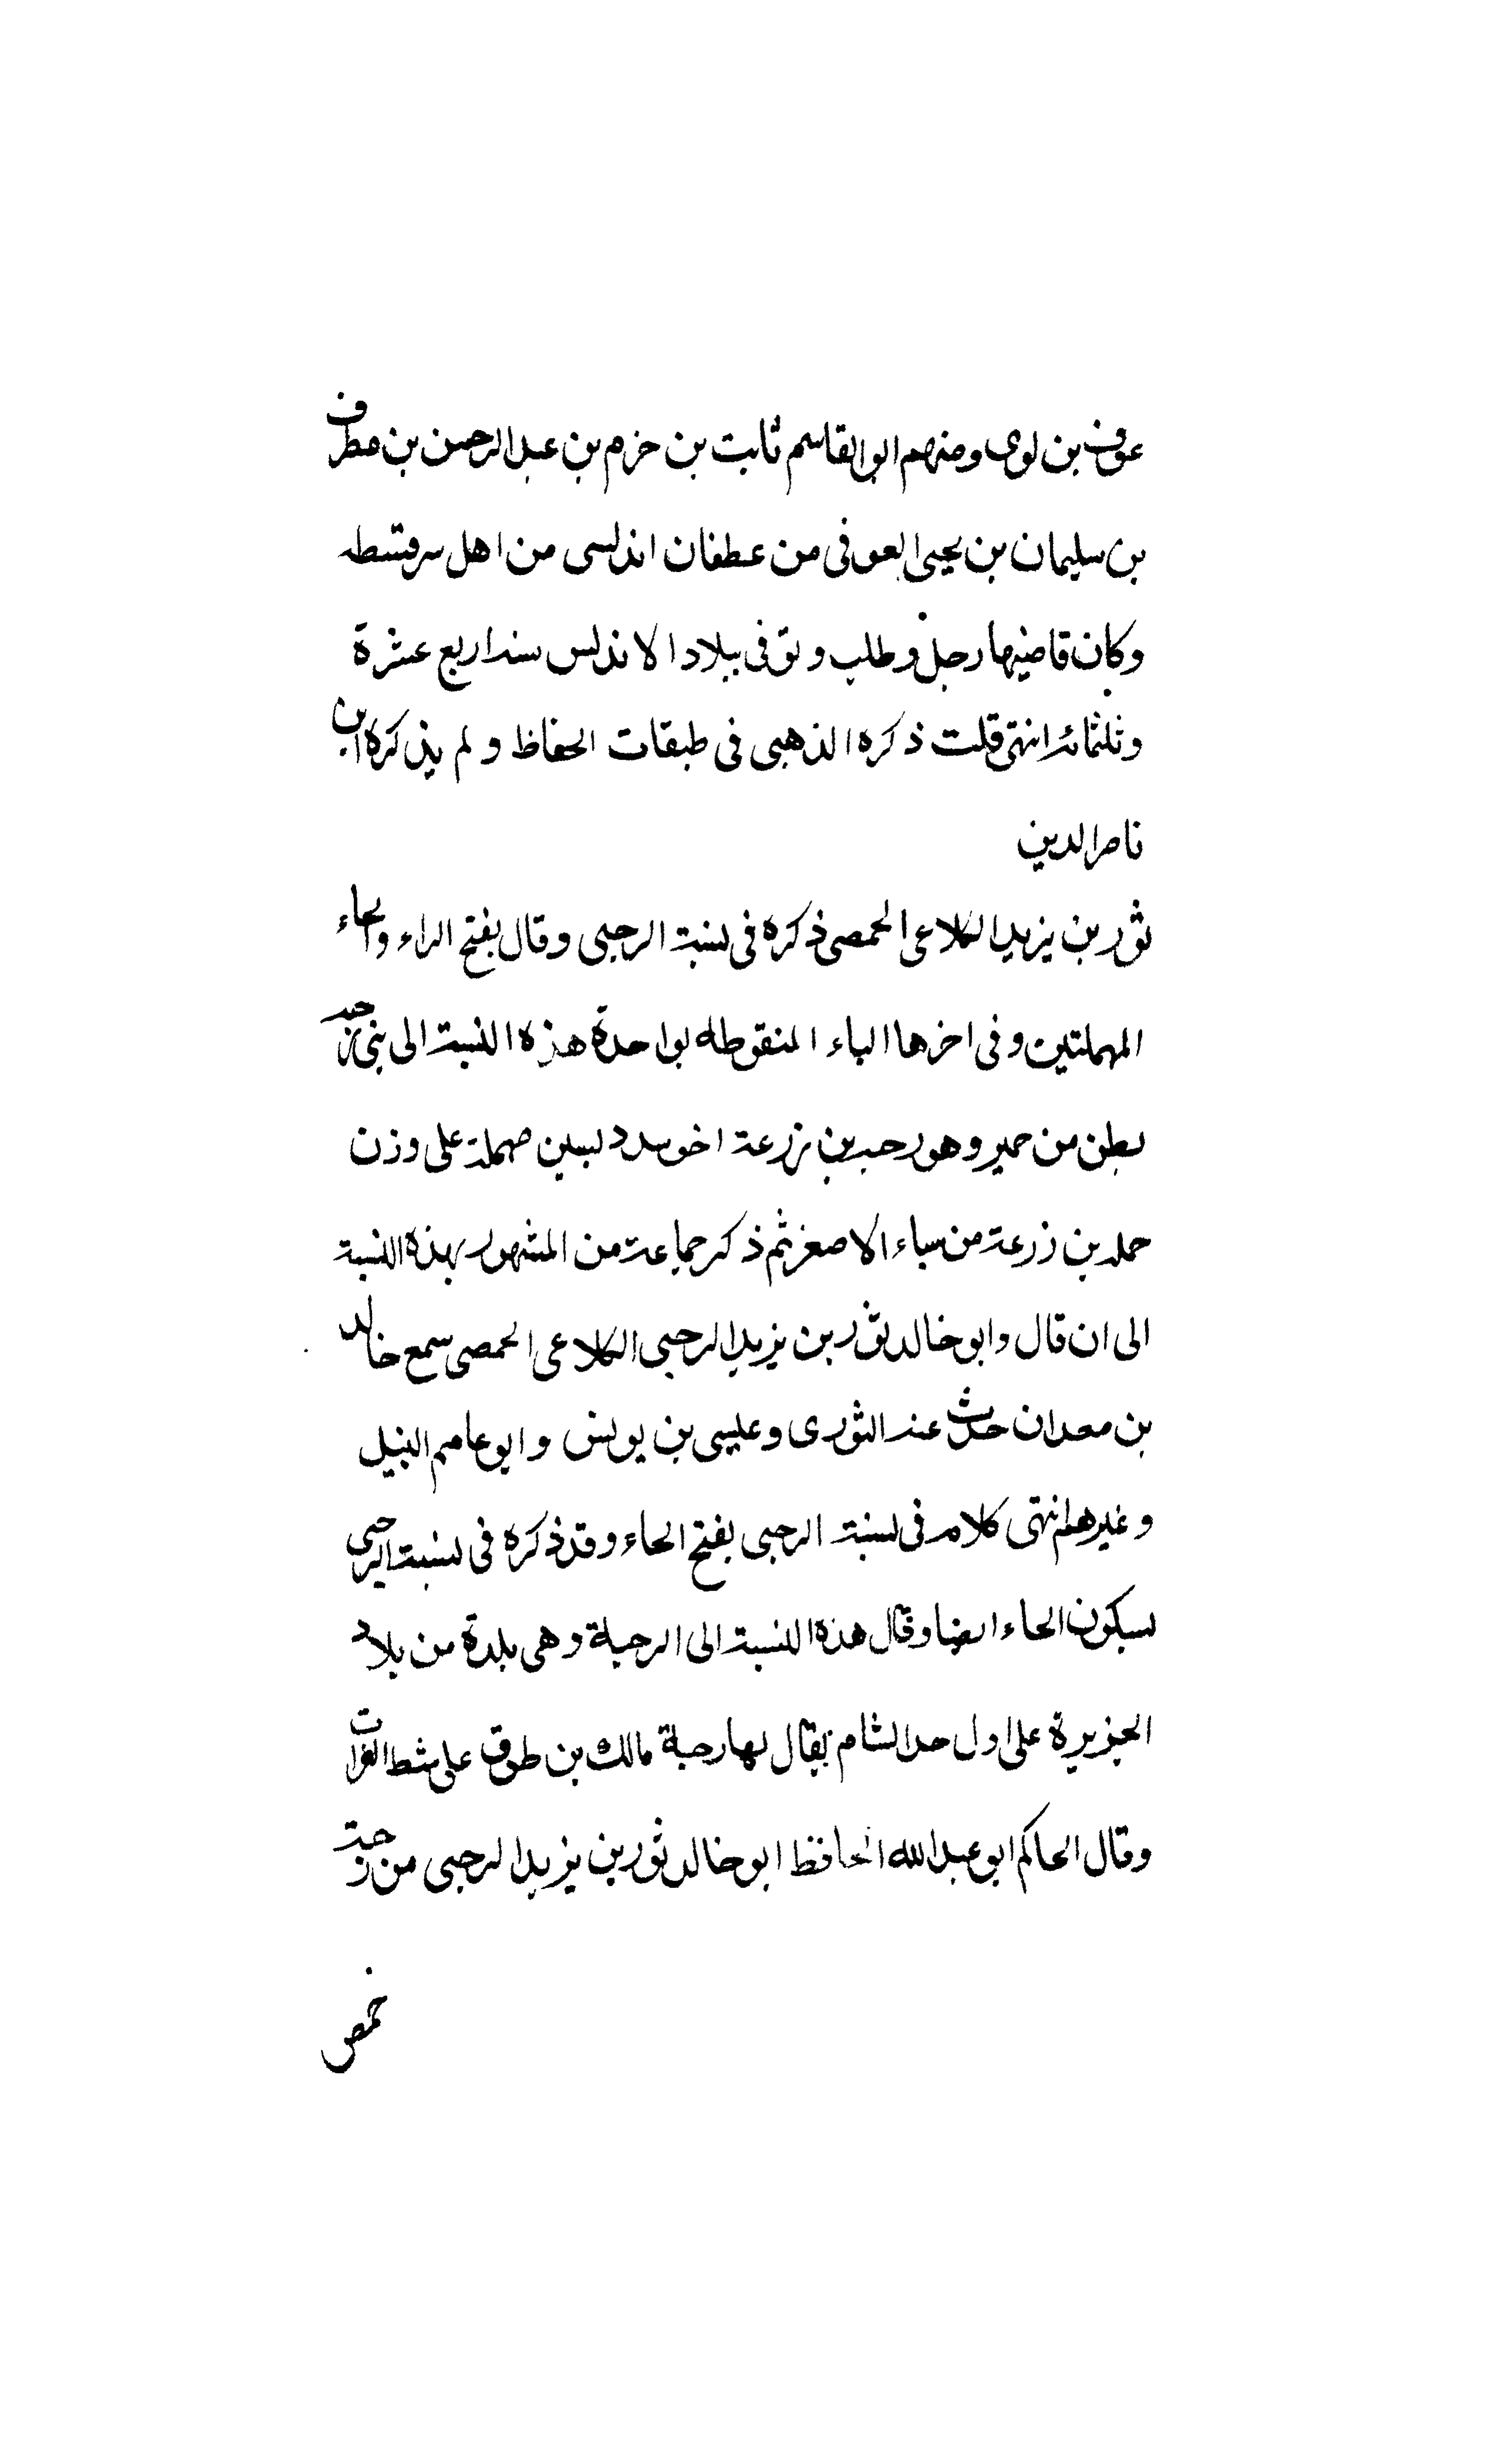 عوف بن لوى ومنهم ابو القاسم ثابت بن حزم بن عبد الرحمن بن مطرف
بن سليمان بن يحيى العوفى من عطفان اندلسى من اهل سرقسطه
وكان قاضيها رحل وطلب وتوفى ببلاد الاندلس سنه اربع عشرة
وثلثمائه انتهى قلت ذكره الذهبى فى طبقات الحفاظ ولم يذكره ابن
ناصر الدين
ثور بن يزيد الكلاعى الحمصى ذكره فى نسبة الرحبى وقال بفتح الراء والحاء
المهملتين وفى اخرها الباء المنقوطه بواحدة هذه النسبة الى بنى رحبه
بطن من حمير وهو رحبه بن زرعة اخو سدد بسين مهملة على وزن
حمله بن زرعة من سباء الاصغر ثم ذكر جماعة من المشهور بهذه النسبة
الى ان قال وابو خالد ثور بن يزيد الرحبى الكلاعى الحمصى سمع خالد
بن معدان حدث عنه الثورى وعيسى بن يونس وابو عاصم النبيل
وغيرهم انتهى كلامه فى نسبة الرحبى بفتح الحاء وقد ذكره فى نسبة الرحبى
بسكون الحاء ايضا وقال هذه النسبة الى الرحبة وهى بلدة من بلاد
الجزيرة على اول حد الشام يقال لها رحبة مالك بن طوق على شط الفرات
وقال الحاكم ابو عبد الله الحافظ ابو خالد ثور بن يزيد الرحبى من رحبة
حمص